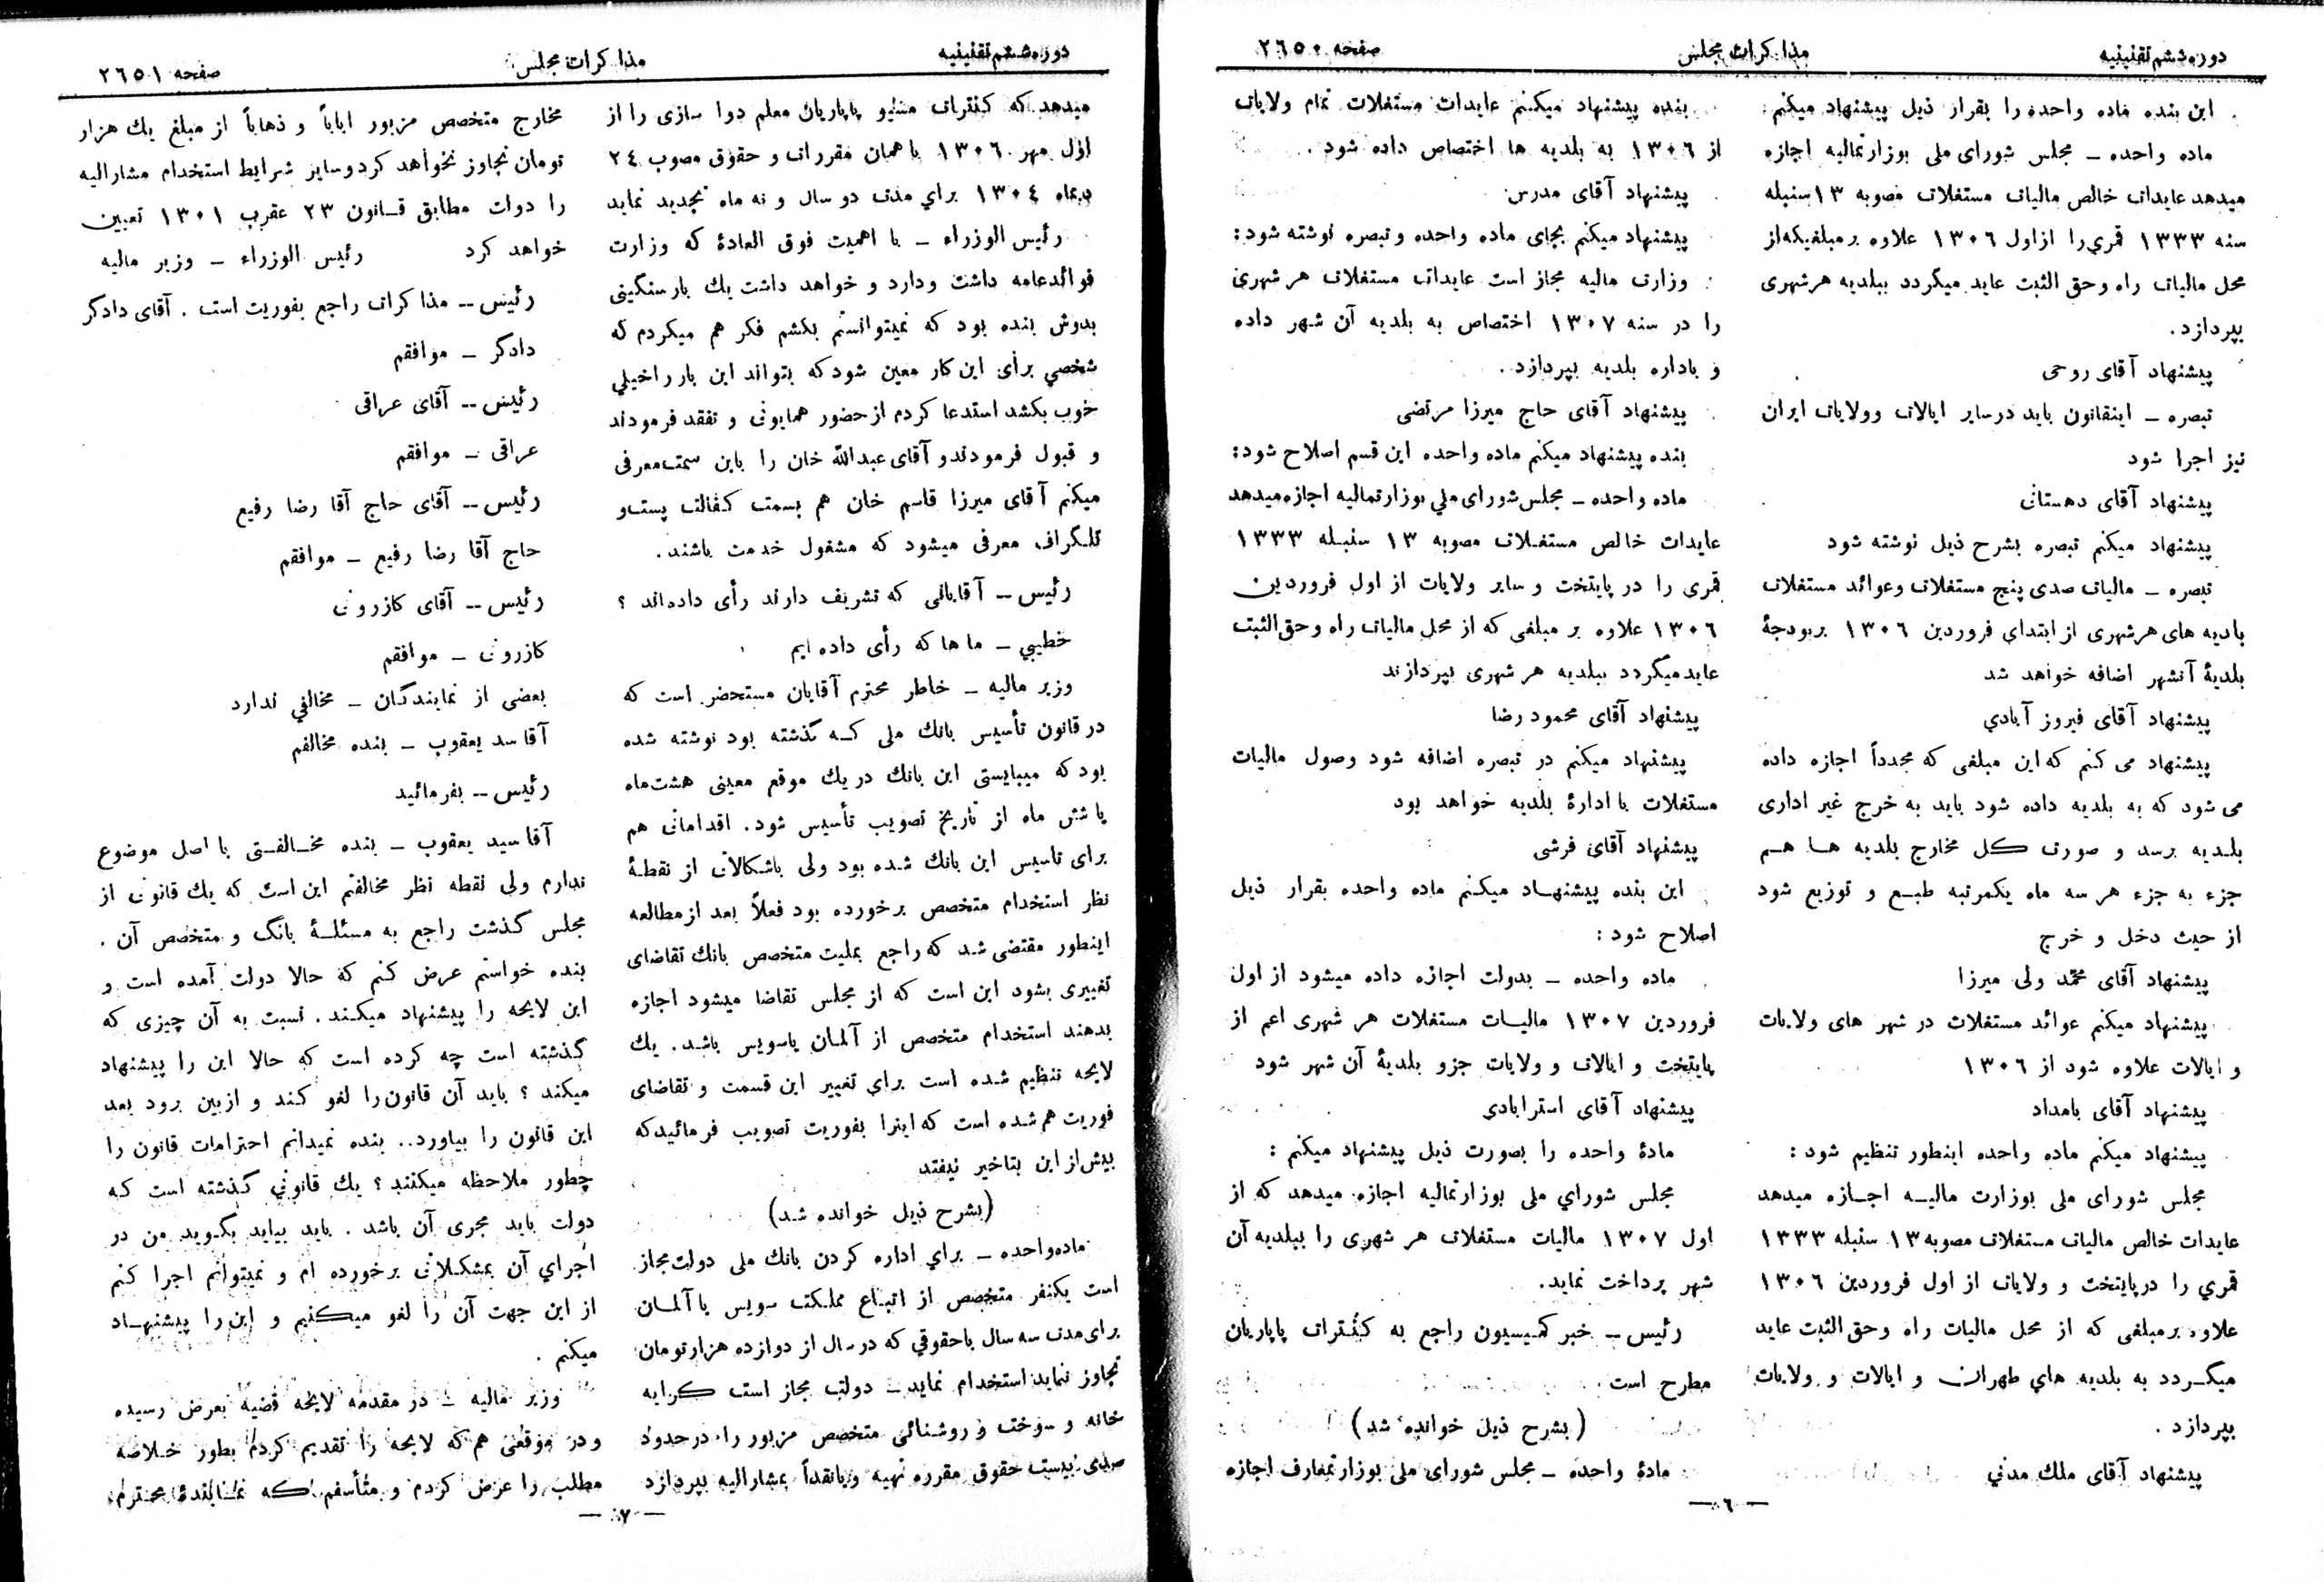 دوره ششم تقنینیه
مذاکرات مجلس
صفحه ۲٦٥۰
این بنده ماده واحده را بقرار ذیل پیشنهاد میکنم:
ماده واحده ــ مجلس شورای ملی بوزارتمالیه اجازه
میدهد عایدات خالص مالیات مستغلات مصوبه ۱۳ سنبله
سنه ۱۳۳۳ قمری را از اول ۱۳۰٦ علاوه بر مبلغیکه از
محل مالیات راه و حق الثبت عاید میگردد ببلدیه هر شهری
بپردازد.
پیشنهاد آقای روحی
تبصره ــ اینقانون باید در سایر ایالات و ولایات ایران
نیز اجرا شود
پیشنهاد آقای دهستانی
پیشنهاد میکنم تبصره بشرح ذیل نوشته شود
تبصره ــ مالیات صدی پنج مستغلات و عوائد مستغلات
بلدیه های هر شهری از ابتدای فروردین ۱۳۰٦ بر بودجهٔ
بلدیهٔ آنشهر اضافه خواهد شد
پیشنهاد آقای فیروز آبادي
پیشنهاد می کنم که این مبلغی که مجدداً اجازه داده
می شود که به بلدیه داده شود باید به خرج غیر اداری
بلدیه برسد و صورت کل مخارج بلدیه ها هم
جزء به جزء هر سه ماه یکمرتبه طبع و توزیع شود
از حیث دخل و خرج
پیشنهاد آقای محمد ولی میرزا
پیشنهاد میکنم عوائد مستغلات در شهر های ولایات
و ایالات علاوه شود از ۱۳۰٦
پیشنهاد آقای بامداد
پیشنهاد میکنم ماده واحده اینطور تنظیم شود :
مجلس شورای ملی بوزارت مالیه اجازه میدهد
عایدات خالص مالیات مستغلات مصوبه ۱۳ سنبله ۱۳۳۳
قمري را در پایتخت و ولایات از اول فروردین ۱۳۰٦
علاوه بر مبلغی که از محل مالیات راه و حق الثبت عاید
میگردد به بلدیه هاي طهران و ایالات و ولایات
بپردازد .
پیشنهاد آقای ملك مدني
بنده پیشنهاد میکنم عایدات مستغلات تمام ولایات
از ۱۳۰٦ به بلدیه ها اختصاص داده شود .
پیشنهاد آقای مدرس
پیشنهاد میکنم بجای ماده واحده و تبصره نوشته شود:
وزارت مالیه مجاز است عایدات مستغلات هر شهری
را در سنه ۱۳۰۷ اختصاص به بلدیه آن شهر داده
و باداره بلدیه بپردازد.
پیشنهاد آقای حاج میرزا مرتضی
بنده پیشنهاد میکنم ماده واحده این قسم اصلاح شود:
ماده واحده ــ مجلس شورای ملي بوزارتمالیه اجازه میدهد
عایدات خالص مستغلات مصوبه ۱۳ سنبله ۱۳۳۳
قمری را در پایتخت و سایر ولایات از اول فروردین
۱۳۰٦ علاوه بر مبلغی که از محل مالیات راه و حق الثبت
عاید میگردد ببلدیه هر شهری بپردازند
پیشنهاد آقای محمود رضا
پیشنهاد میکنم در تبصره اضافه شود وصول مالیات
مستغلات با ادارهٔ بلدیه خواهد بود
پیشنهاد آقای فرشی
این بنده پیشنهاد میکنم ماده واحده بقرار ذیل
اصلاح شود :
ماده واحده ــ بدولت اجازه داده میشود از اول
فروردین ۱۳۰۷ مالیات مستغلات هر شهری اعم از
پایتخت و ایالات و ولایات جزو بلدیهٔ آن شهر شود
پیشنهاد آقای استرابادی
مادهٔ واحده را بصورت ذیل پیشنهاد میکنم :
مجلس شوراي ملی بوزارتمالیه اجازه میدهد که از
اول ۱۳۰۷ مالیات مستغلات هر شهری را ببلدیه آن
شهر پرداخت نماید.
رئیس ــ خبر کمیسیون راجع به کنترات پاپاریان
مطرح است
( بشرح ذیل خوانده شد )
مادهٔ واحده ــ مجلس شورای ملی بوزارتمعارف اجازه
— ٦ —
دوره ششم تقنینیه
مذاکرات مجلس
صفحه ۲٦٥۱
میدهد که کنترات مسیو پاپاریان معلم دوا سازی را از
اول مهر ۱۳۰٦ با همان مقررات و حقوق مصوب ۲٤
دیماه ۱۳۰٤ براي مدت دو سال و نه ماه تجدید نماید
رئیس الوزراء ــ با اهمیت فوق العادهٔ که وزارت
فوائد عامه داشت و دارد و خواهد داشت یك بار سنگینی
بدوش بنده بود که نمیتوانستم بکشم فکر هم میکردم که
شخصي برای این کار معین شود که بتواند این بار را خیلي
خوب بکشد استدعا کردم از حضور همایونی و تفقد فرمودند
و قبول فرمودند و آقای عبدالله خان را باین سمت معرفی
میکنم آقای میرزا قاسم خان هم بسمت کفالت پست و
تلگراف معرفی میشود که مشغول خدمت باشند.
رئیس ــ آقایانی که تشریف دارند رأی داده‌اند ؟
خطیبي ــ ما ها که رأی داده ایم
وزیر مالیه ــ خاطر محترم آقایان مستحضر است که
در قانون تأسیس بانك ملی که گذشته بود نوشته شده
بود که میبایستی این بانك در یك موقع معینی هشت ماه
یا شش ماه از تاریخ تصویب تأسیس شود. اقداماتی هم
برای تاسیس این بانك شده بود ولی باشکالاتی از نقطهٔ
نظر استخدام متخصص برخورده بود فعلاً بعد از مطالعه
اینطور مقتضی شد که راجع بملیت متخصص بانك تقاضای
تغییری بشود این است که از مجلس تقاضا میشود اجازه
بدهند استخدام متخصص از آلمان یا سویس باشد. یك
لایحه تنظیم شده است براي تغییر این قسمت و تقاضای
فوریت هم شده است که اینرا بفوریت تصویب فرمائید که
بیش از این بتاخیر نیفتد
(بشرح ذیل خوانده شد)
ماده واحده ــ براي اداره کردن بانك ملی دولت مجاز
است یکنفر متخصص از اتباع مملکت سویس یا آلمان
برای مدت سه سال با حقوقي که در سال از دوازده هزار تومان
تجاوز ننماید استخدام نماید ــ دولت مجاز است کرایه
خانه و سوخت و روشنائی متخصص مزبور را در حدود
صدی بیست حقوق مقرره تهیه و یا نقداً بمشارالیه بپردازد
مخارج متخصص مزبور ایاباً و ذهاباً از مبلغ یك هزار
تومان تجاوز نخواهد کرد و سایر شرایط استخدام مشارالیه
را دولت مطابق قانون ۲۳ عقرب ۱۳۰۱ تعیین
خواهد کرد رئیس الوزراء ــ وزیر مالیه
رئیس ــ مذاکرات راجع بفوریت است . آقای دادگر
دادگر ــ موافقم
رئیس ــ آقای عراقی
عراقی ــ موافقم
رئیس ــ آقای حاج آقا رضا رفیع
حاج آقا رضا رفیع ــ موافقم
رئیس ــ آقای کازرونی
کازرونی ــ موافقم
بعضی از نمایندگان ــ مخالفي ندارد
آقا سد یعقوب ــ بنده مخالفم
رئیس ــ بفرمائید
آقا سید یعقوب ــ بنده مخالفتی با اصل موضوع
ندارم ولی نقطه نظر مخالفتم این است که یك قانونی از
مجلس گذشت راجع به مسئلهٔ بانگ و متخصص آن .
بنده خواستم عرض کنم که حالا دولت آمده است و
این لایحه را پیشنهاد میکند . نسبت به آن چیزی که
گذشته است چه کرده است که حالا این را پیشنهاد
میکند ؟ باید آن قانون را لغو کند و از بین برود بعد
این قانون را بیاورد.. بنده نمیدانم احترامات قانون را
چطور ملاحظه میکنند ؟ یك قانونی گذشته است که
دولت باید مجری آن باشد . باید بیاید بگوید من در
اجراي آن بمشکلاتی برخورده ام و نمیتوانم اجرا کنم
از این جهت آن را لغو میکنیم و این را پیشنهاد
میکنم .
وزیر مالیه ــ در مقدمه لایحه قضیه بعرض رسیده
و در موقعی هم که لایحه را تقدیم کردم بطور خلاصه
مطلب را عرض کردم و متأسفم که نمایندهٔ محترم
— ۷ —